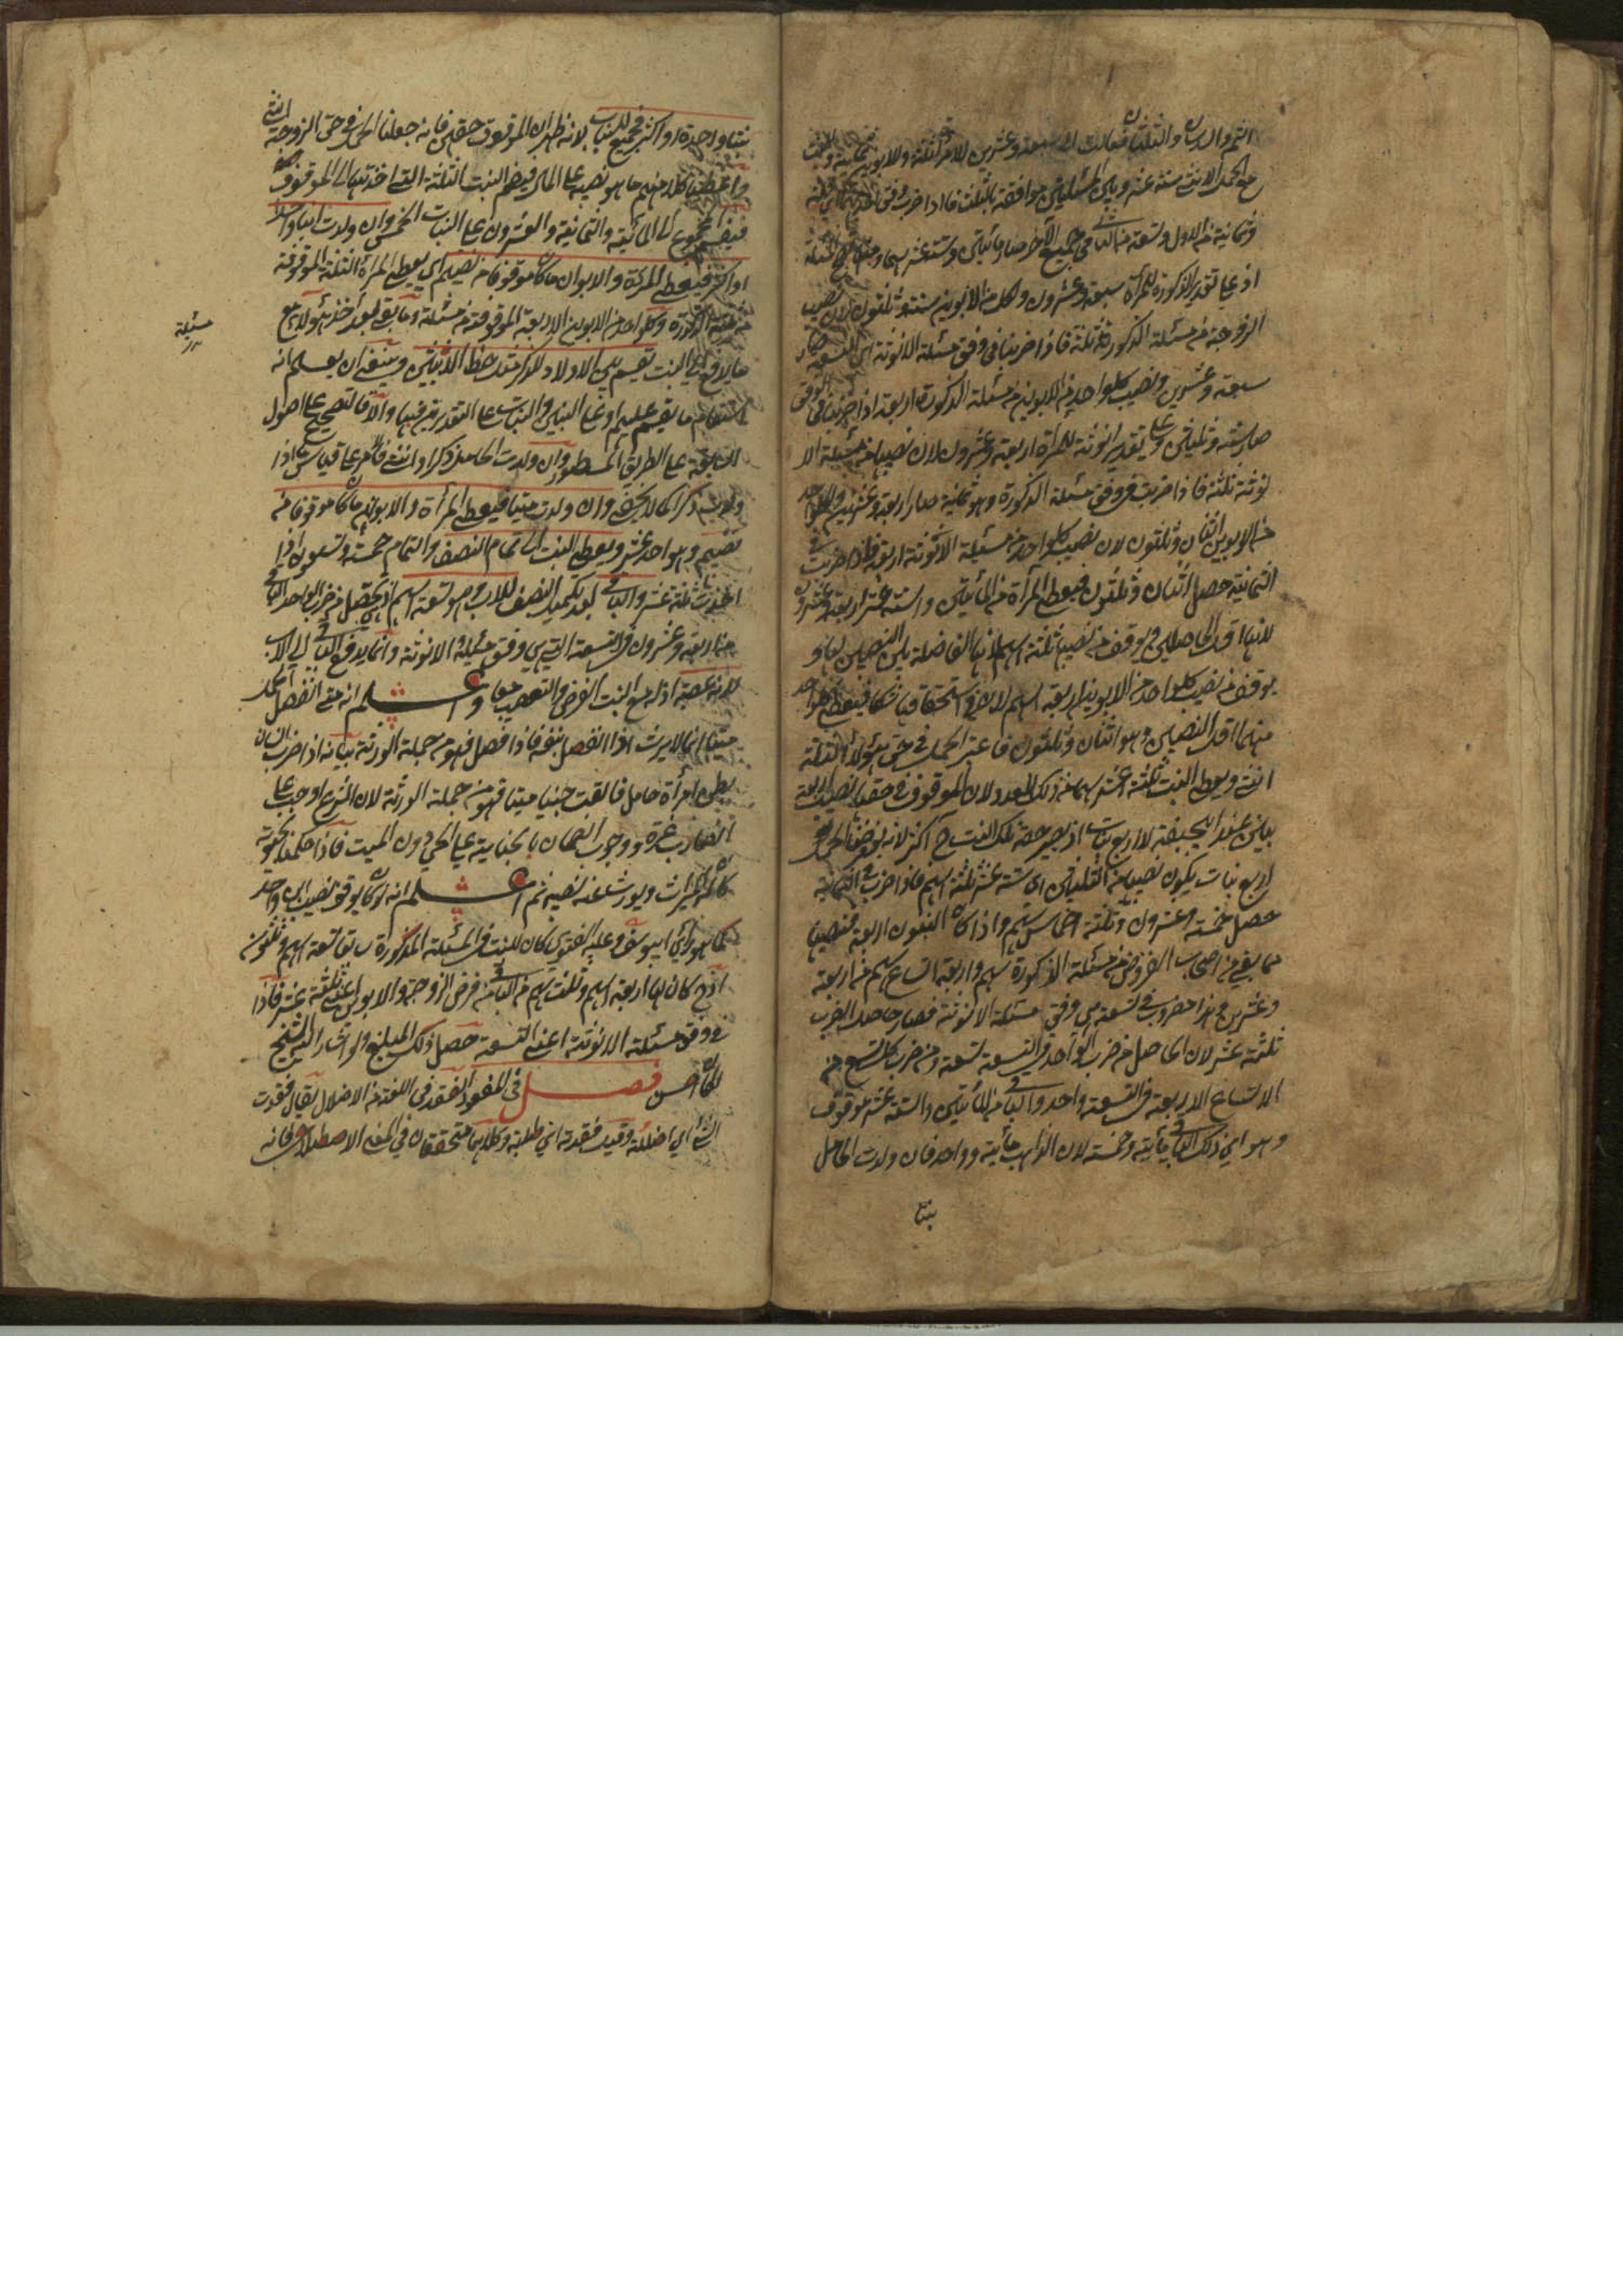 الثمن والسدسان والثلثان فعالت الى سبعة وعشرين للامرأة ثلثة وللابوين ثمانية وللبنت
مع الحمل الانثى ستة عشر وبين المسئلتين موافقة بالثلث فاذا ضرب وفق احدهما اي ثلثة
وثمانية من الاول وتسعة من الثاني في جميع الآخر صار مائتين وستة عشر سهما ومنها تصح المسئلة
اذ على تقدير الذكورة للمرأة سبعة وعشرون ولكل من الابوين ستة وثلثون لان نصيب
الزوجة من مسئلة الذكورة ثلثة فاذا ضربنا في وفق مسئلة الانوثة اي التسعة صار
سبعة وعشرين ونصيب كل واحد من الابوين من مسئلة الذكورة اربعة اذا ضربنا في الوفق
صار ستة وثلثين وعلى تقدير انوثة للمرأة اربعة وعشرون لان نصيبها من مسئلة الا
نوثة ثلثة فاذا ضربت في وفق مسئلة الذكورة وهو ثمانية صار اربعة وعشرين ولكل واحد
من الابوين اثنان وثلثون لان نصيب كل واحد من مسئلة الانوثة اربعة فاذا ضربت في
الثمانية حصل اثنان وثلثون فيعطى المرأة من المائتين والستة عشر اربعة وعشرون
لانها اقل الحاصلين ويوقف من نصيبها ثلثة اسهم لانها الفاضلة بين النصيبين لها و
يوقف من نصيب كل واحد من الابوين اربعة اسهم لان في استحقاقها شكا فيعطى كل واحد
منهما اقل النصيبين وهو اثنان وثلثون فاعتبر الحمل في حق هؤلاء الثلثة
انثى ويعطى البنت ثلثة عشر سهما من ذلك العدد لان الموقوف في حقها نصيب اربعة
بنين عند ابي حنيفة لا اربع بنات اذ يصير حصة تلك البنت ح اكثر لانه لو فرضنا الحمل
اربع بنات يكون نصيبها من الثلثين اي ستة عشر ثلثة اسهم فاذا ضرب في الثمانية
حصل خمسة وعشرون وثلثة اخماس سهم واذا كان البنون اربعة فنصيبها
مما بقي من اصحاب الفروض من مسئلة الذكورة سهم واربعة اتساع سهم من اربعة
وعشرين وهذا مضروب في تسعة هي وفق مسئلة الانوثة فصار حاصل الضرب
ثلثة عشر لان الحاصل من ضرب الواحد في التسعة تسعة ومن ضرب كل تسع من
الاتساع الاربعة في التسعة واحد والباقي من المائتين والستة عشر موقوف
وهو اي ذلك الباقي مائة وخمسة لان الذاهب مائة وواحد فان ولدت الحامل
بنتا
بنتا واحدة او اكثر فجميع للبنات لانه ظهر ان الموقوف حقهن فانه جعلنا الحمل في حق الزوجة انثى
واعطينا كلا منهم ما هو نصيبه على الحال فيضم البنت الثلثة التي اخذتها الى الموقوف
فيقسم مجموع المائة والثمانية والعشرون على البنات الخمس وان ولدت ابنا واحدا
او اكثر فيعطى للمرأة والابوان ما كان موقوفا من نصيبهم اي يعطى المرأة الثلثة الموقوفة
وكل واحد من الابوين الاربعة الموقوفة من مسئلة وما بقي بعد اخذ هؤلاء مع
ما يدفع الى البنت تقسم بين الاولاد للذكر مثل حظ الانثيين وينبغي ان يعلم انه
استقام ما يقسم عليهم او على البنين والبنات على التقديرين فبها والا فالتصحيح على اصول
السابقة على الطريق المسطور وان ولدت الحامل ذكرا وانثى فالامر على قياس ما اذا
ولدت ذكرا كما لا يخفى وان ولدت ميتا فيعطى المرأة والابوان ما كان موقوفا من
نصيبهم وهو احد عشر ويعطى البنت الى تمام النصف والتمام خمسة وتسعون اذا
اخذت ثلثة عشر والباقي بعد تكميل النصف للاب وهو تسعة اسهم اذ يحصل من ضرب الواحد الباقي
من اربعة وعشرون في التسعة التي هي وفق مسئلة الانوثة وانما يدفع الباقي الى الاب
لانه عصبة اذ له مع البنت الفرض والتعصيب معا واعلم انه متى انفصل الحمل
ميتا انما لا يرث اذا انفصل بنفسه فاذا فصل فهو من جملة الورثة بيانه اذا ضرب انسان
بطن امرأة حامل فالقت جنينا ميتا فهو من جملة الورثة لان الشرع اوجب على
الضارب غرة ووجوب الضمان بالجناية على الحي دون الميت فاذا حكمنا بحيوته
كان له الميراث ويورث عنه نصيبه ثم اعلم انه لو كان يوقف نصيب ابن واحد
كما هو رأي ابي يوسف وعليه الفتوى كان للبنت في المسئلة المذكورة تسعة اسهم وثلثون
اذ ح كان لها اربعة اسهم وثلث سهم من الباقي من فرض الزوجة والابوين اعني ثلثة عشر فاذا
في وفق مسئلة الانوثة اعني التسعة حصل ذلك المبلغ ولو اشار اليه الشيخ
لكان احسن فصل في المفقود الفقد في اللغة من الاضلال يقال فقدت
الشئ اي اضللته وقيل فقدته اي طلبته وكلاهما متحققان في المعنى الاصطلاحي فانه
مسئلة